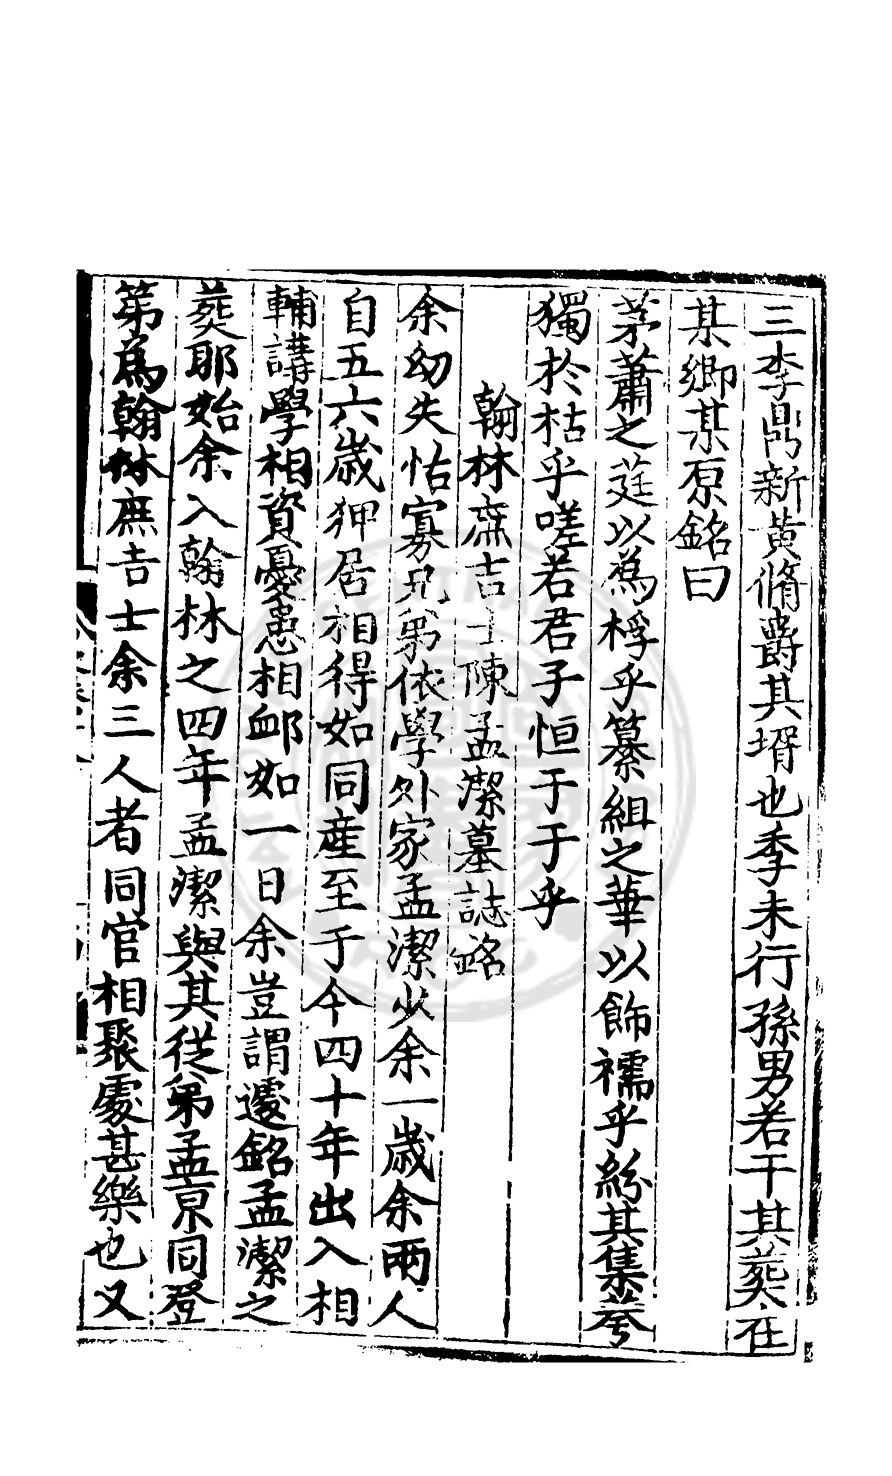 三李鼎新黃脩爵其壻也季未行孫男若干其葬在
某鄉某原銘曰
茅蕭之莛以為桴乎纂組之華以飾襦乎紛其集萼
獨於枯乎嗟若君子恒于于乎
翰林庶吉士陳孟潔墓誌銘
余幼失怙寡兄弟依學外家孟潔少余一歲余兩人
自五六歲狎居相得如同產至于今四十年出入相
輔講學相資憂患相卹如一日余豈謂遽銘孟潔之
葬耶始余入翰林之四年孟潔與其從弟孟京同登
第為翰林庶吉士余三人者同官相聚處甚樂也又